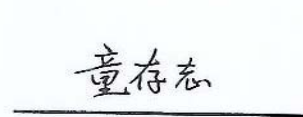 童存志